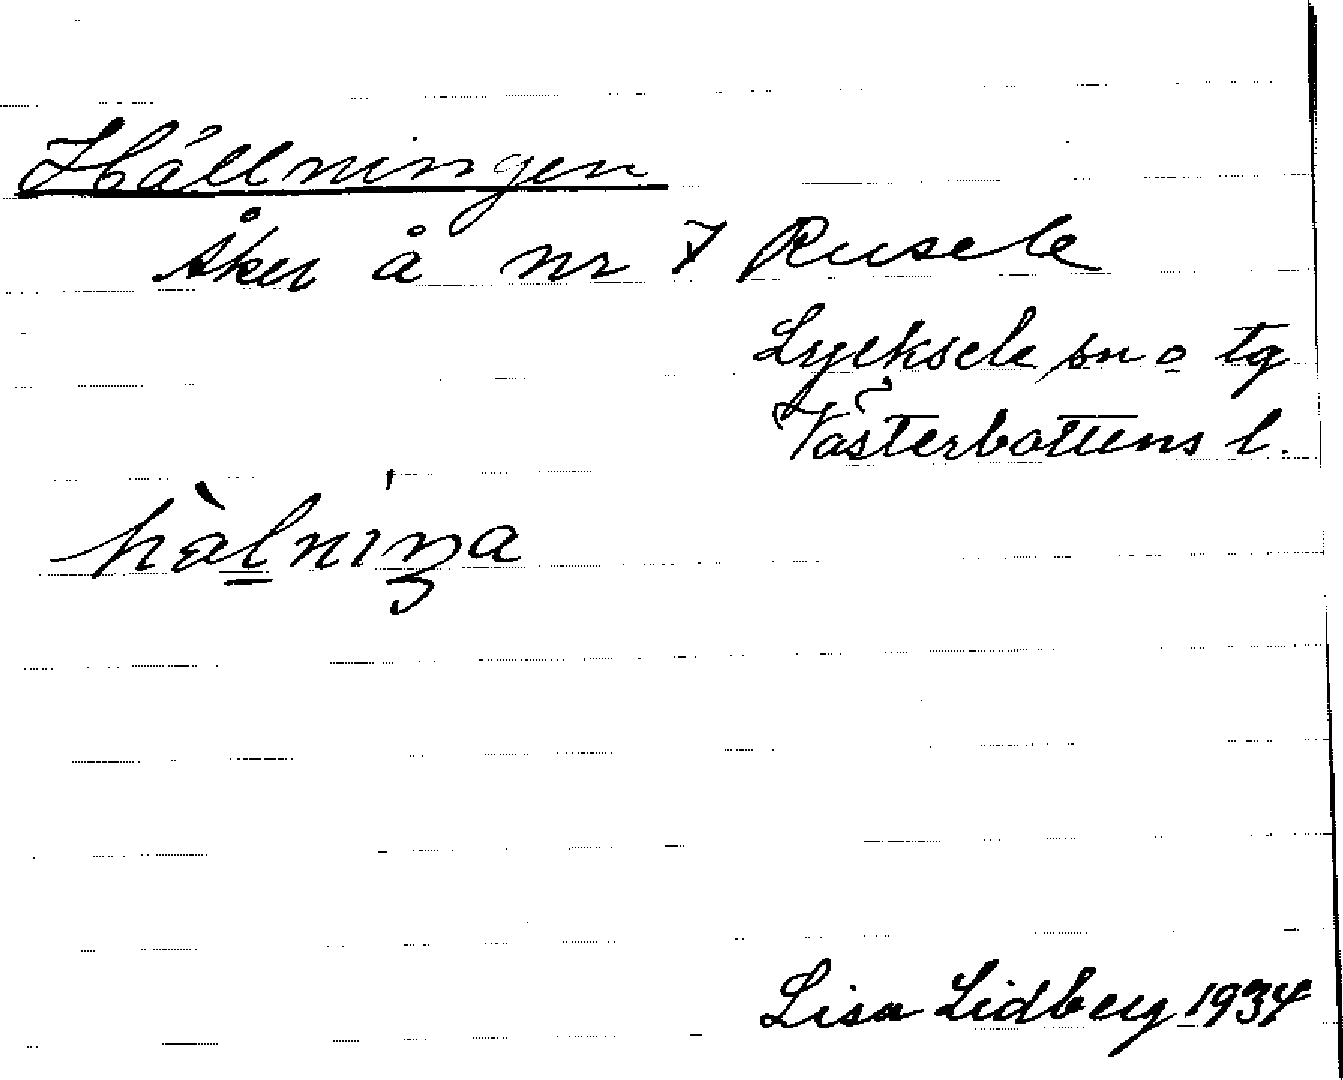 Hållningen
Åker å nr 7 Rusele
Lycksele sn o tg
Västerbottens l.
hàlniŋa
Lisa Lidberg 1934